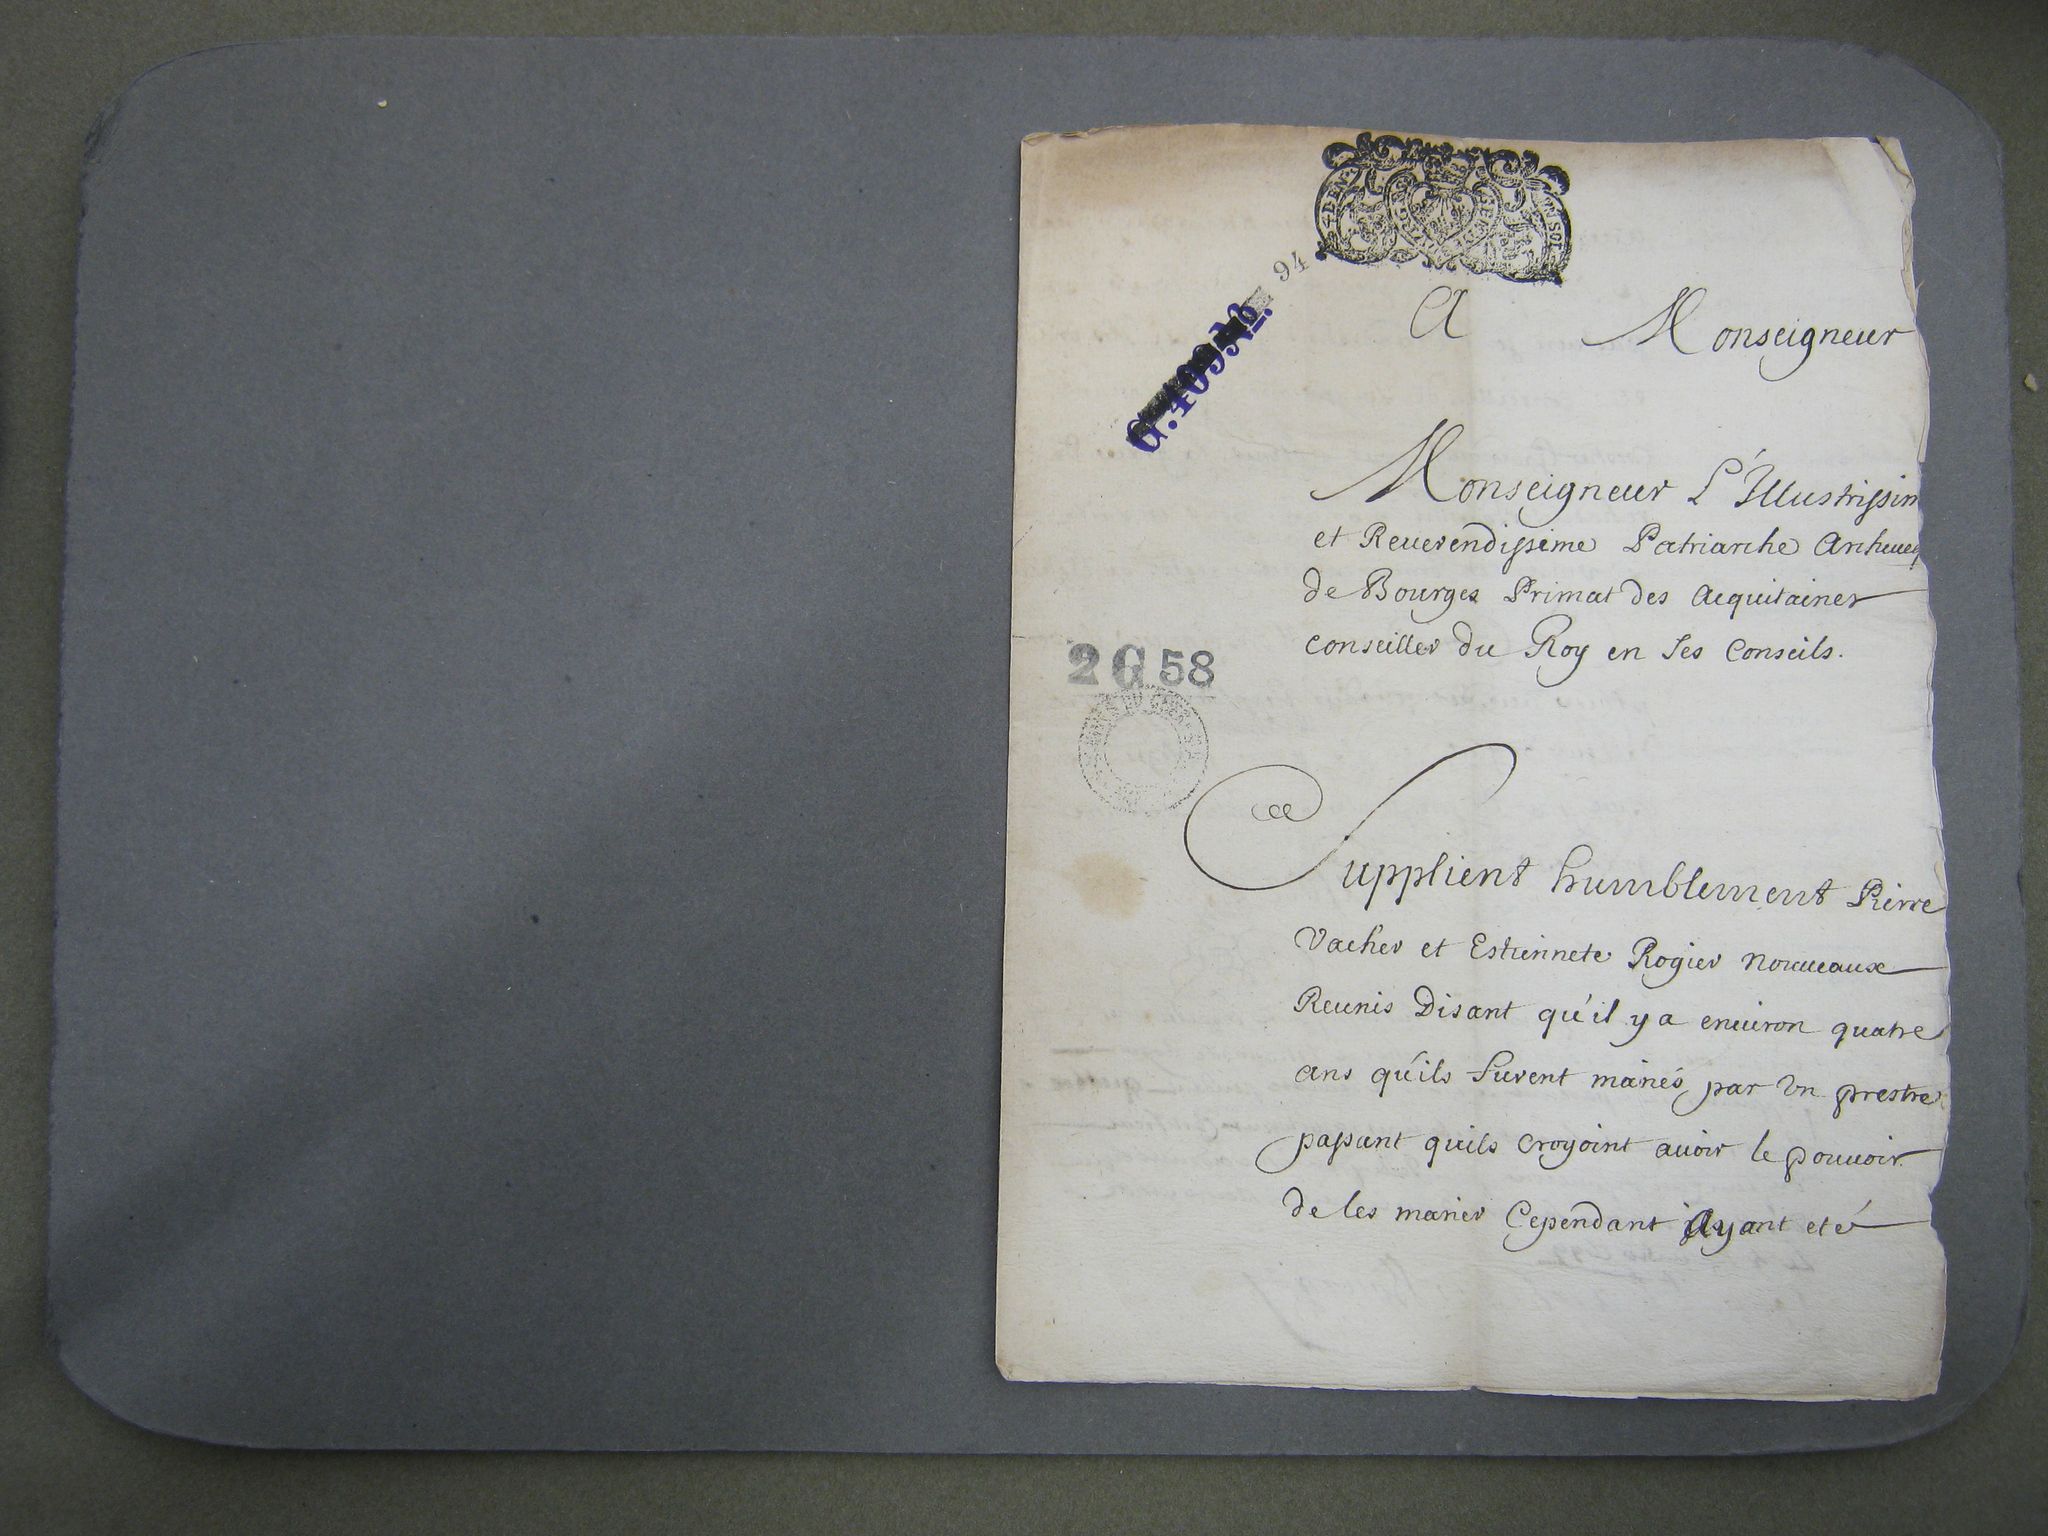 94
G. 409 No.
A Monseigneur
Monseigneur L'Illustrissim
et Reuerendissime Patriarche Archeueq
de Bourges Primat des Acquitaines
conseiller du Roy en ses Conseils.
2 G 58
Supplient humblement Pierre
Vacher et Estiennete Rogier nouueaux
Reunis Disant qu'il y a enuiron quatre
ans qu'ils furent mariés par Un prestre
passant quils croyoint auoir le pouuoir
de les marier Cependant Ayant eté